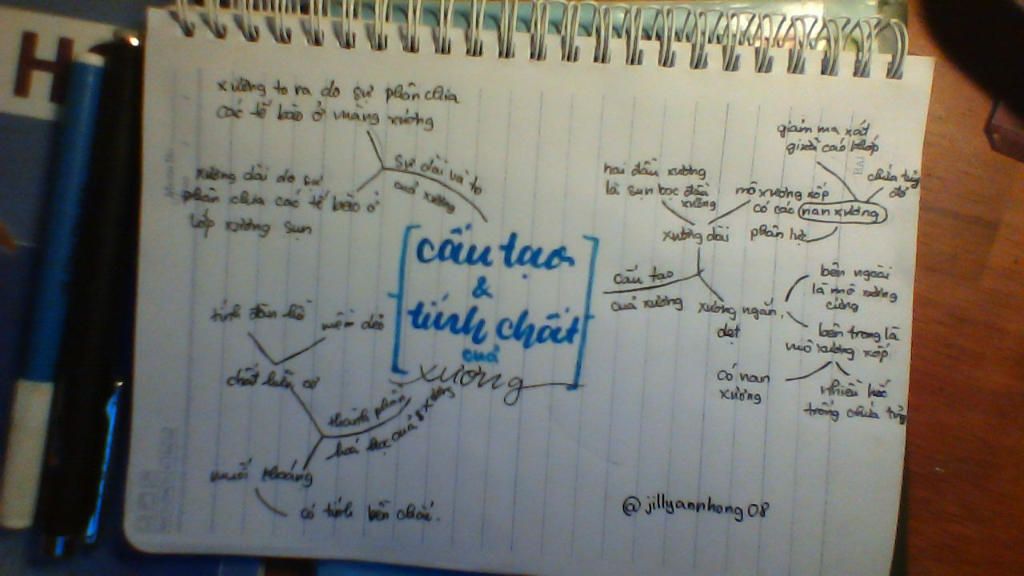 H
xương to ra do sự phân chia
các tế bào ở màng xương
sự dài và to
quả xương
xương dài do sự
phân chia các tế bào ở
lớp xương sụn
[cấu tạo
&
tính chất
quả
xương]
tính đàn hồi
mềm dẻo
chất hữu cơ
thành phần
hoá học quả xương
muối khoáng
có tính bền chắc.
cấu tạo
quả xương
xương dài
hai đầu xương
là sụn bọc đầu
xương
mô xương xốp
có các nan xương
phân lực
giảm ma xát
giữa các khớp
chứa tủy
đỏ
xương ngắn,
dẹt
bên ngoài
là mô xương
cứng
bên trong là
mô xương xốp
có nan
xương
nhiều hốc
trống chứa tủy
@jillyannhong08